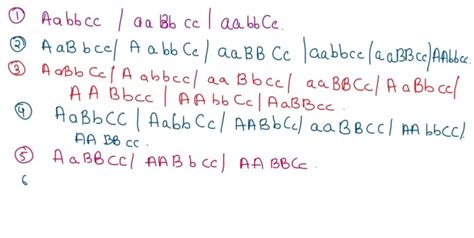 ① Aabbcc / aaBbcc / aabbCc.
② AaBbcc/ AabbCc/ aaBBCc /aabbcc/aaBBcc/AAbbcc.
③ AaBbCc/ Aabbcc/ aaBbcc/ aaBBCc/ AaBbCc/
AABbcc / AAbbCc / AaBBcc.
④ AaBbCC / AabbCc / AaBBCc/ aaBBCC / AAbbCC/
AABBcc.
⑤ AaBBCC/ AABbcc/ AABBCc.
6